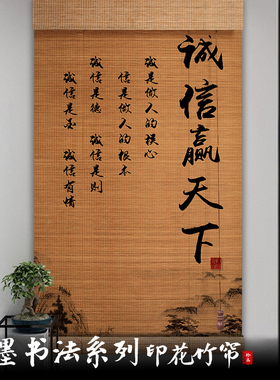 诚信赢天下
诚是做人的核心
信是做人的根本
诚信是德 诚信是则
诚信是金 诚信有情
墨书法系列印花竹帘